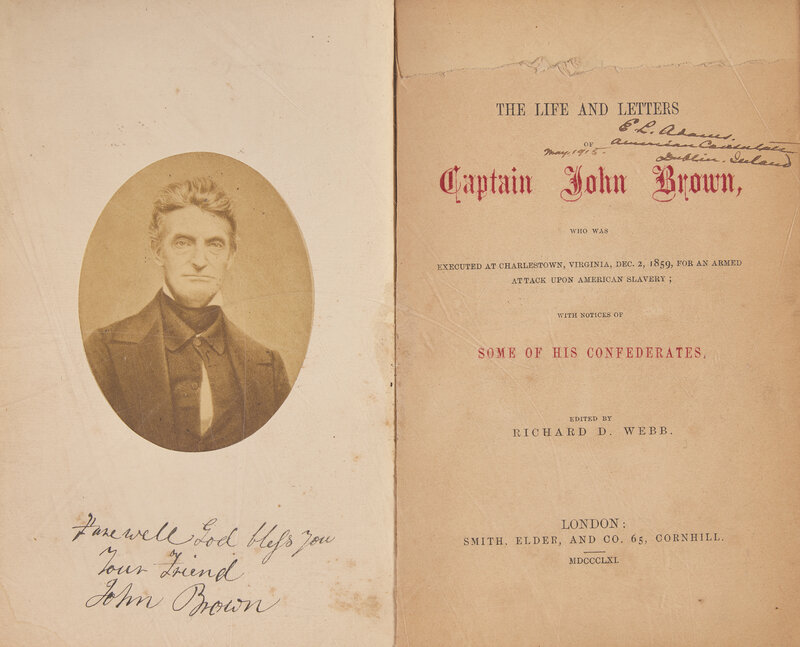 Farewell God bless you
Your Friend
John Brown
THE LIFE AND LETTERS
OF
E. L. Adams.
American Consulate
Dublin. Ireland
May. 1915.
Captain John Brown,
WHO WAS
EXECUTED AT CHARLESTOWN, VIRGINIA, DEC. 2, 1859, FOR AN ARMED
ATTACK UPON AMERICAN SLAVERY ;
WITH NOTICES OF
SOME OF HIS CONFEDERATES.
EDITED BY
RICHARD D. WEBB.
LONDON:
SMITH, ELDER, AND CO. 65, CORNHILL.
MDCCCLXI.